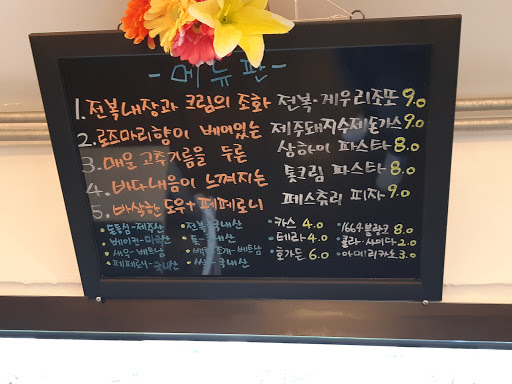 - 메뉴판 -
1. 전복내장과 크림의 조화 전복·게우리조또 9.0
2. 로즈마리향이 베어있는 제주돼지수제돈가스 9.0
3. 매운 고추기름을 두른 상하이 파스타 8.0
4. 바다내음이 느껴지는 톳크림 파스타 8.0
5. 바삭한 도우+페페로니 페스츄리 피자 9.0
·돈등심-제주산 ·전복-국내산 ·카스 4.0 ·1664블랑크 8.0
·베이컨-미국산 ·톳-국내산 ·테라 4.0 ·콜라·사이다 2.0
·새우-베트남 조개-베트남 ·호가든 6.0 ·아메리카노 3.0
·페페로니-국내산 ·쌀-국내산